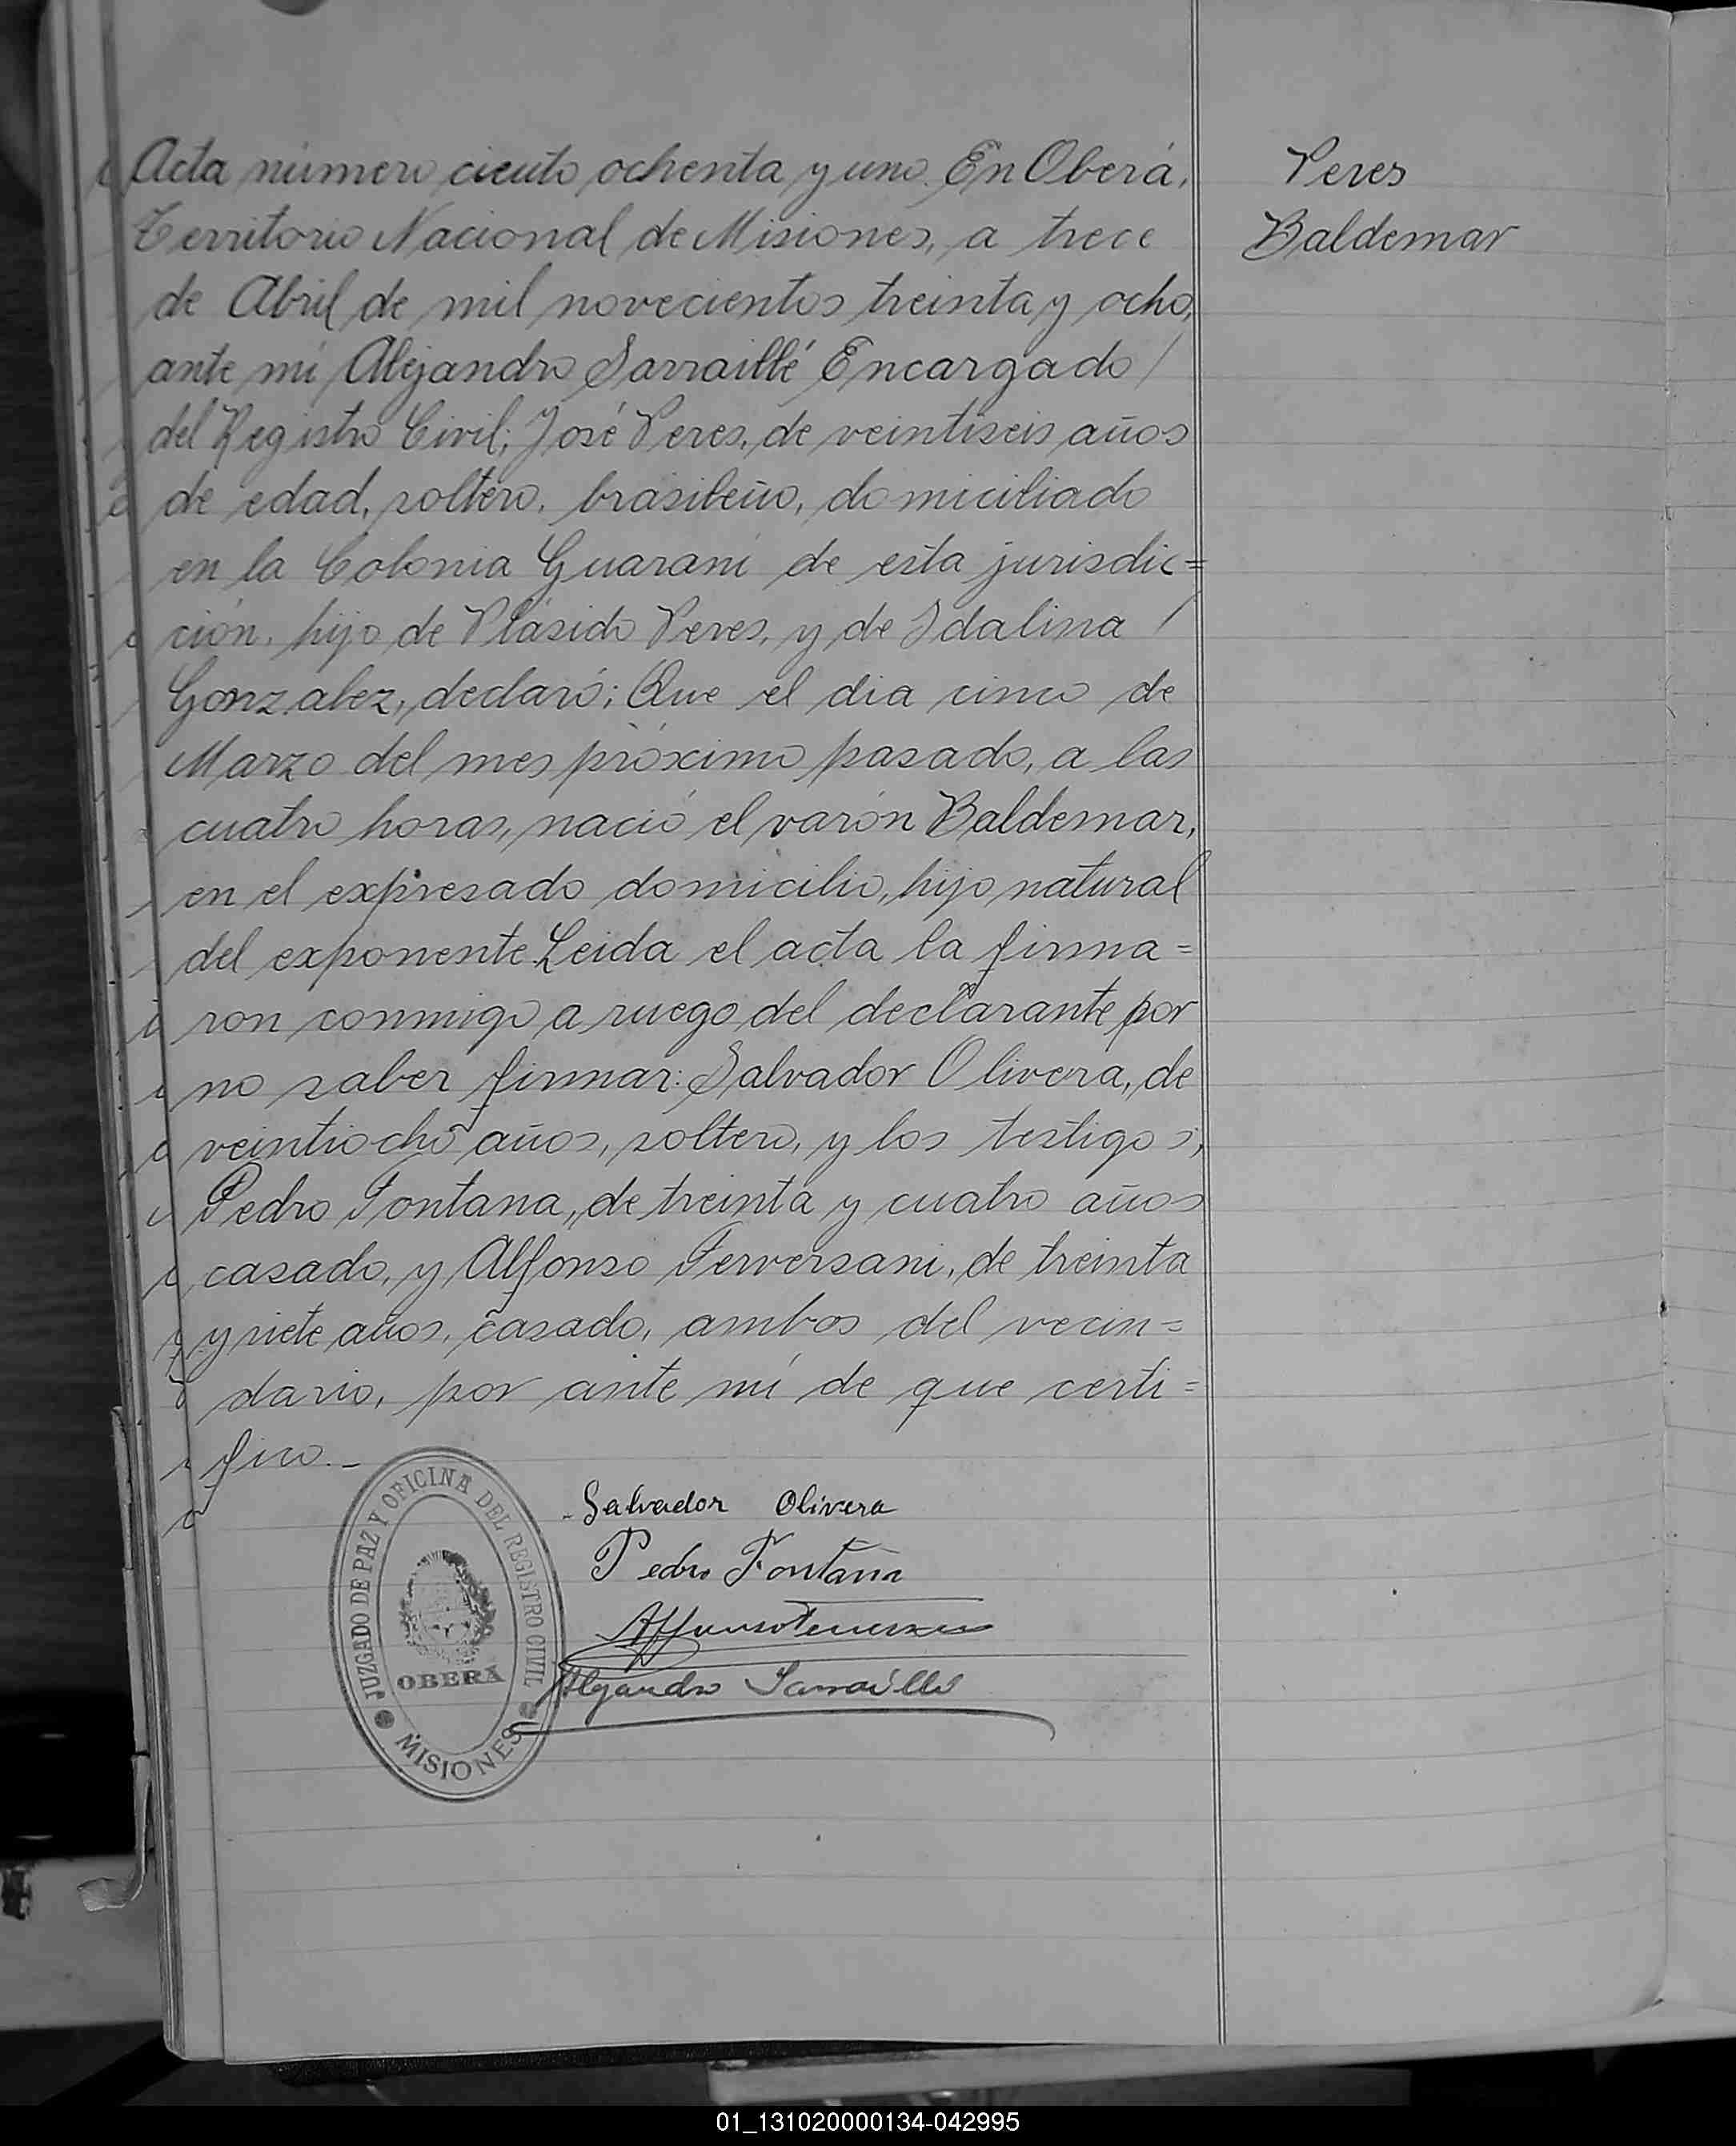 Acta número ciento ochenta y uno. En Oberá,
Territorio Nacional de Misiones, a trece
de Abril de mil novecientos treinta y ocho,
ante mí Alejandro Sarraillé Encargado /
del Registro Civil; José Peres, de veintiseis años
de edad, soltero, brasileño, domiciliado
en la Colonia Guaraní de esta jurisdic=
ción, hijo de Plásido Peres, y de Idalina /
Gonzalez, declaró; Que el dia cinco de
Marzo del mes próximo pasado, a las
cuatro horas, nació el varón Baldemar,
en el expresado domicilio, hijo natural
del exponente. Leida el acta la firma=
ron conmigo a ruego del declarante por
no saber firmar: Salvador Olivera, de
veintiocho años, soltero, y los testigos;
Pedro Fontana, de treinta y cuatro años
casado, y Alfonso Ferversani, de treinta
y siete años, casado, ambos del vecin=
dario, por ante mí de que certi=
fico._
Peres
Baldemar
Salvador Olivera
Pedro Fontana
Alejandro Sarraillé
JUZGADO DE PAZ Y OFICINA DEL REGISTRO CIVIL
OBERA
MISIONES
01_131020000134-042995